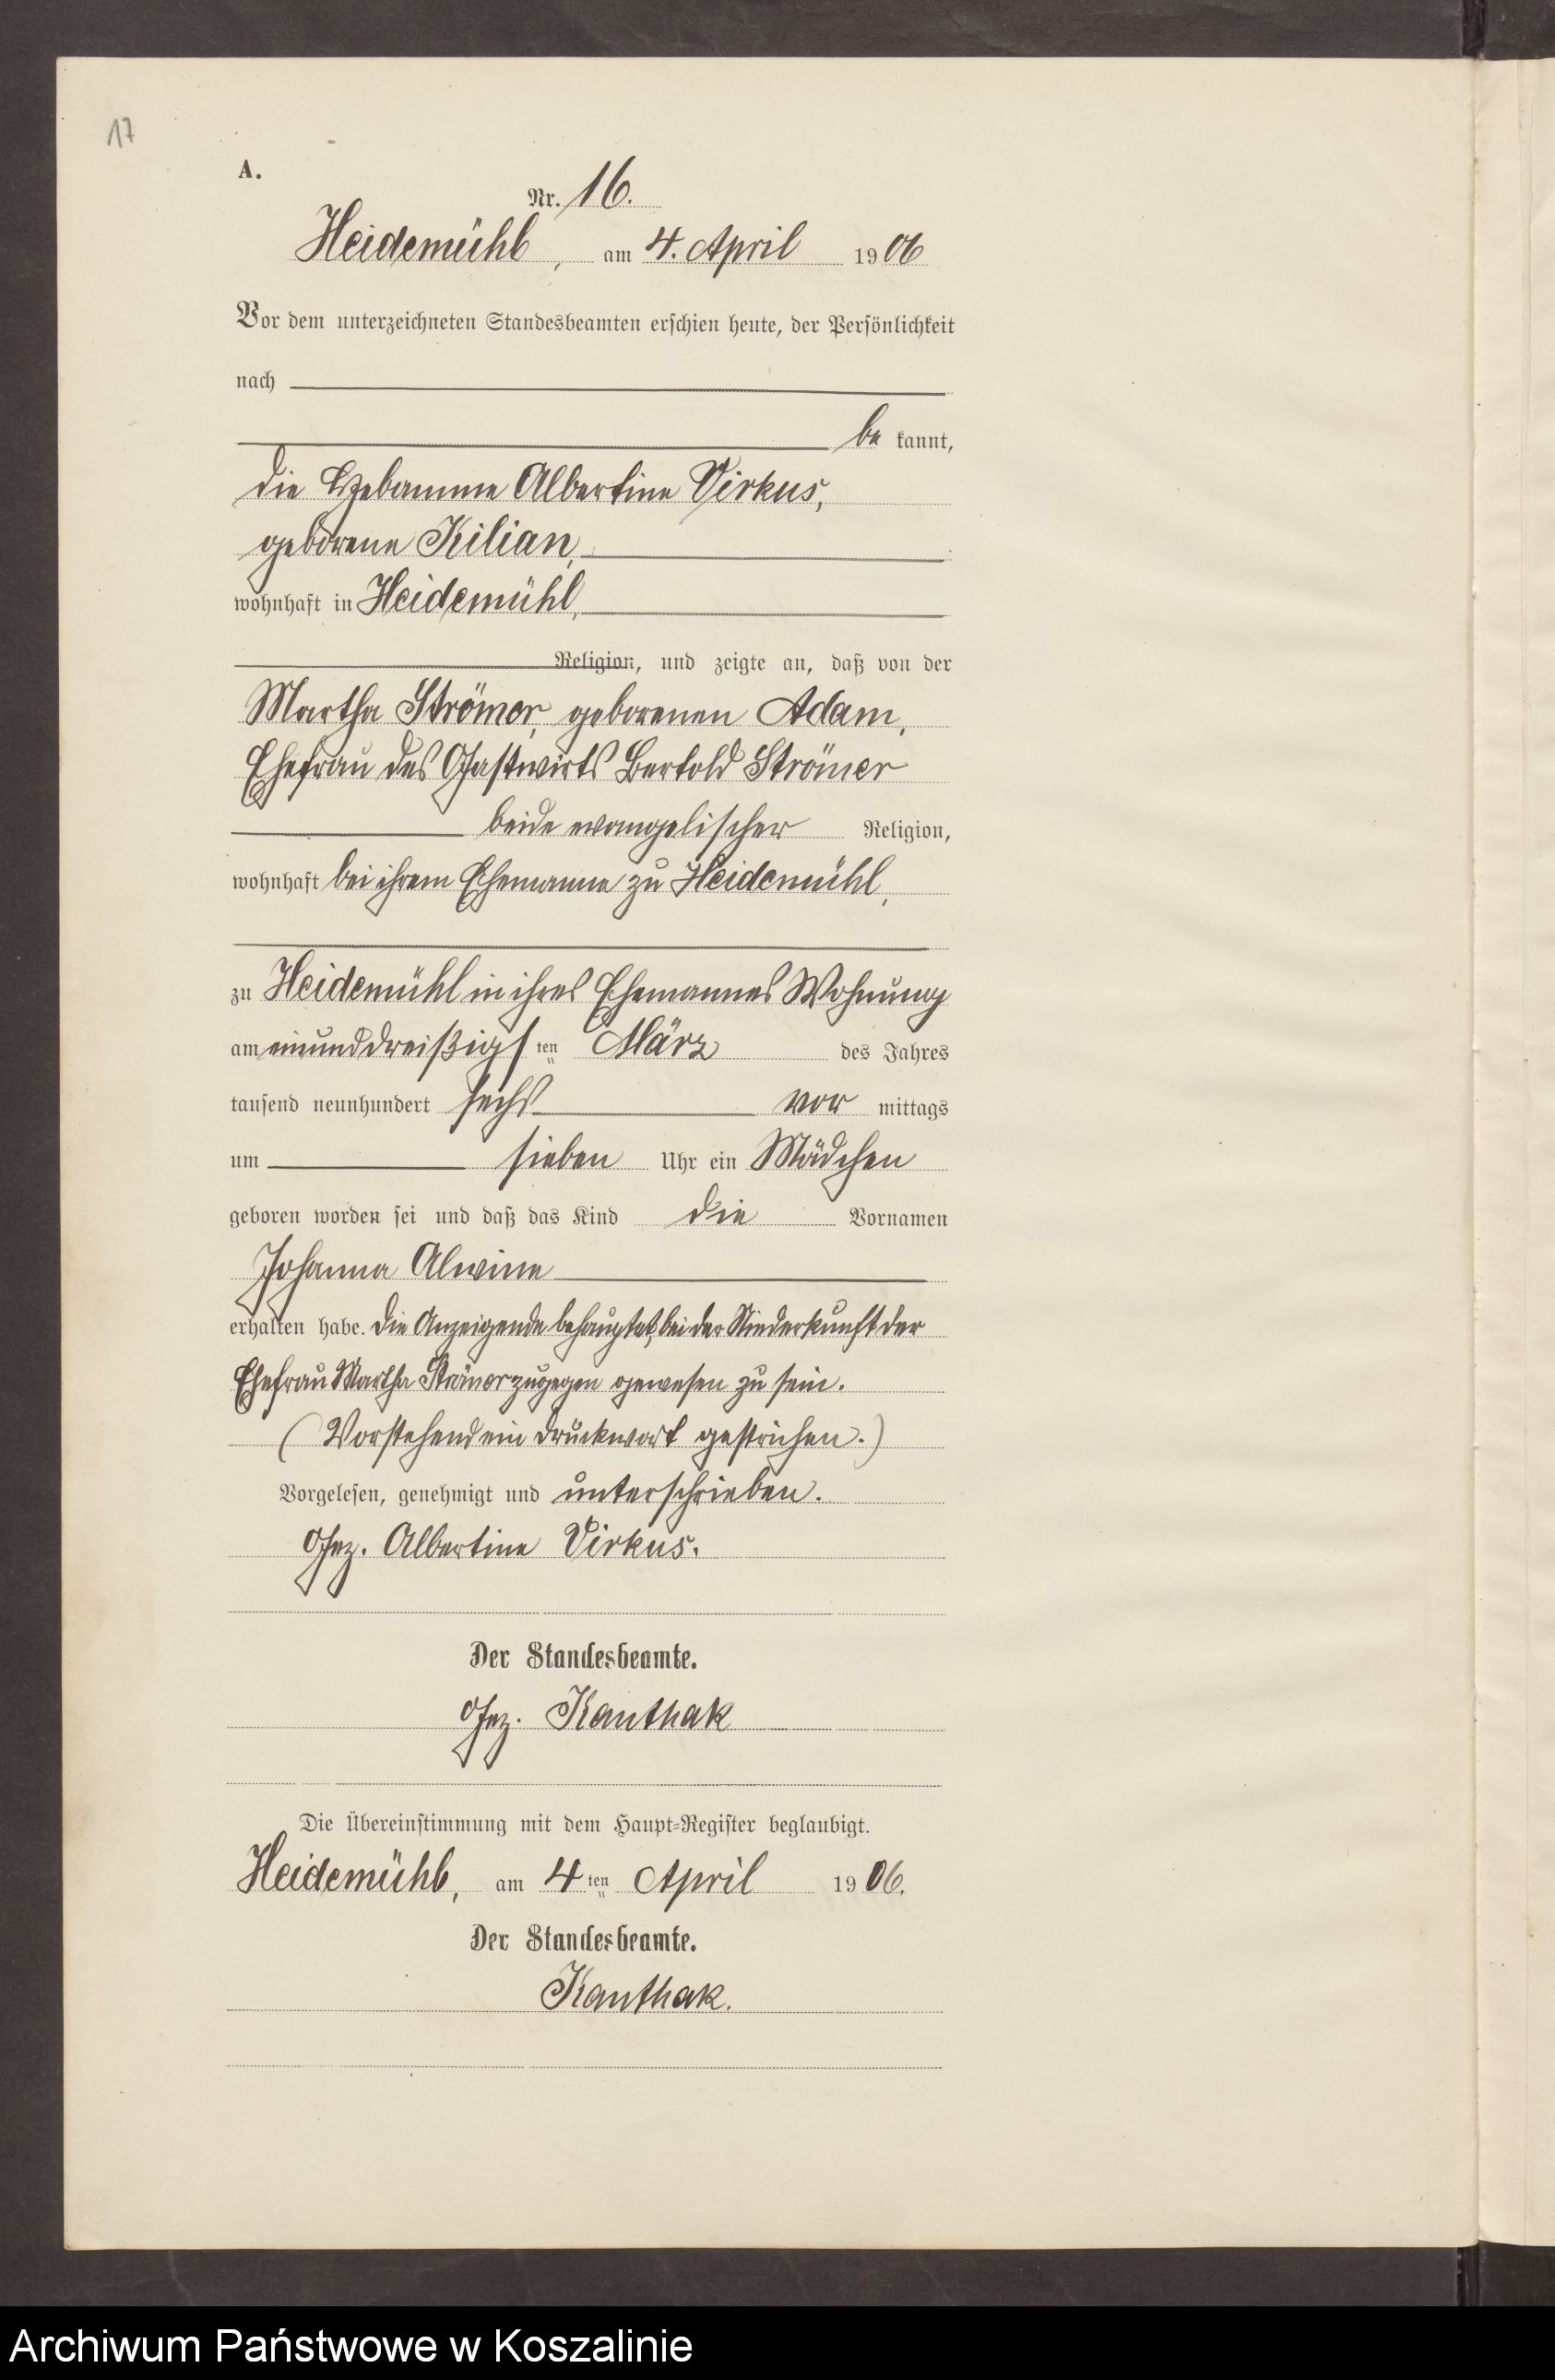 17
A.
Nr. 16.
Heidemühl, am 4. April 1906
Vor dem unterzeichneten Standesbeamten erschien heute, der Persönlichkeit
nach
be kannt,
die Hebamme Albertine Virkus,
geborene Kilian,
wohnhaft in Heidemühl,
Religion, und zeigte an, daß von der
Martha Strömer, geborenen Adam,
Ehefrau des Gastwirts Bertold Strömer
beide evangelischer Religion,
wohnhaft bei ihrem Ehemanne zu Heidemühl,
zu Heidemühl in ihres Ehemannes Wohnung
am einunddreißigsten März des Jahres
tausend neunhundert sechs vor mittags
um sieben Uhr ein Mädchen
geboren worden sei und daß das Kind die Vornamen
Johanna Alwine
erhalten habe. Die Anzeigende behauptet, bei der Niederkunft der
Ehefrau Martha Strömer zugegen gewesen zu sein.
(Vorstehend ein Druckwort gestrichen.)
Vorgelesen, genehmigt und unterschrieben.
Gez. Albertine Virkus.
Der Standesbeamte.
Gez. Kanthak
Die Übereinstimmung mit dem Haupt-Register beglaubigt.
Heidemühl, am 4ten April 1906.
Der Standesbeamte.
Kanthak.
Archiwum Państwowe w Koszalinie